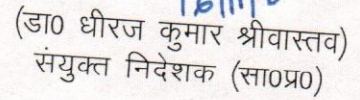 (डा0 धीरज कुमार श्रीवास्तव)
संयुक्त निदेशक (सा0प्र0)